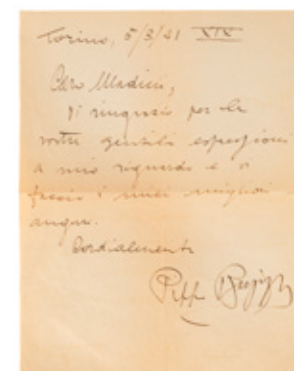 Torino, 5/3/41 XIX
Caro Madini,
Vi ringrazio per le
vostre gentili espressioni
a mio riguardo e vi
faccio i miei migliori
auguri.
Cordialmente